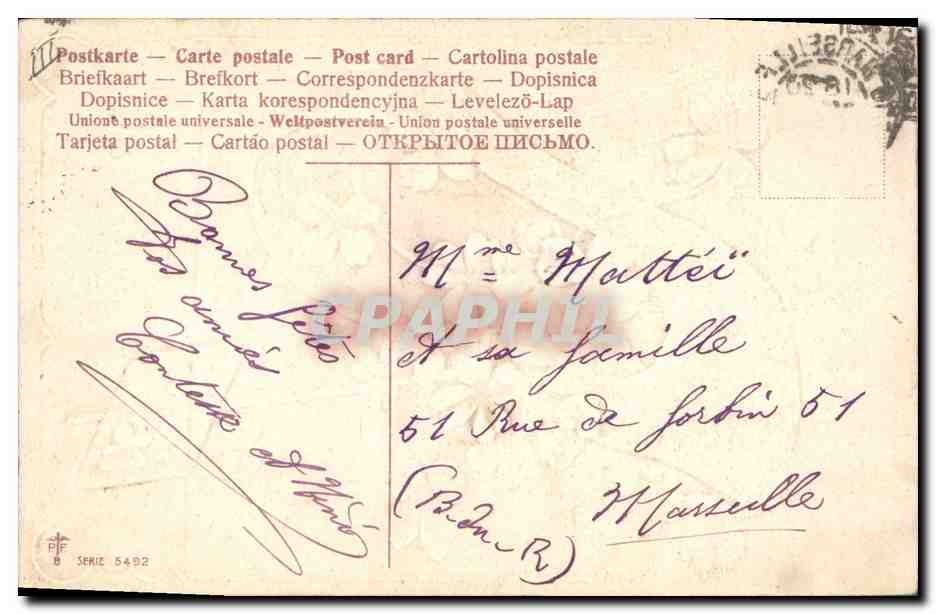 III
Postkarte — Carte postale — Post card — Cartolina postale
Briefkaart — Brefkort — Correspondenzkarte — Dopisnica
Dopisnice — Karta korespondencyjna — Levelező-Lap
Unione postale universale - Weltpostverein - Union postale universelle
Tarjeta postal — Cartão postal — ОТКРЫТОЕ ПИСЬМО.
MARSEILLE
Bonnes fêtes
Vos amies
et
Mme Mattéï
et sa famille
51 Rue de forbin 51
Marseille
(B. du - R)
CPAPHIL
P F
8 SERIE 5492